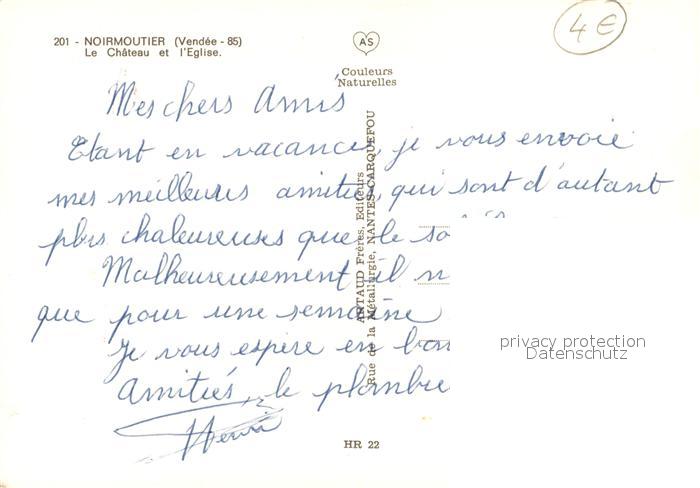 201 - NOIRMOUTIER (Vendée - 85)
Le Château et l'Eglise.
AS
Couleurs
Naturelles
4€
Mes chers Amis
Etant en vacances, je vous envoie
mes meilleures amitiés, qui sont d'autant
plus chaleureuses que le so
Malheureusement il n
que pour une semaine
Je vous espère en bon
Amitiés, le plombie
Henri
ARTAUD Frères, Editeurs
Rue de la Métallurgie, NANTES-CARQUEFOU
privacy protection
Datenschutz
HR 22